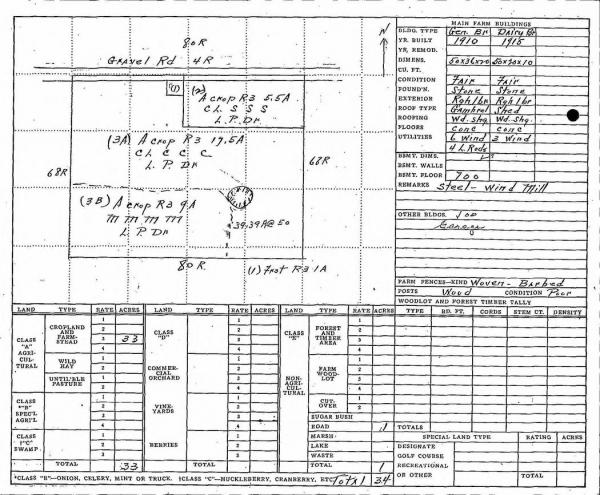 80 R
N
Gravel Rd 4 R
(1)
(2)
A crop R3 5.5A
CL S S S
L. P. Dr
(3A) A crop R3 17.5A
CL C C C
L. P. Dr
68R
68R
(3B) A crop R3 9A
m m m m
L P. Dn
39.39A@50
80 R.
(1) Frst R3 1A
MAIN FARM BUILDINGS
BLDG. TYPE Gen. Br Dairy Br
YR. BUILT 1910 1915
YR. REMOD.
DIMENS. 50x36x20 50x30x10
CU. FT.
CONDITION Fair Fair
FOUND'N. Stone Stone
EXTERIOR Rgh lbr Rgh lbr
ROOF TYPE Gambrel Shed
ROOFING Wd. Shg. Wd. Shg.
FLOORS conc conc
UTILITIES 6 Wind 3 Wind
4 L. Rods
BSMT. DIMS.
BSMT. WALLS
BSMT. FLOOR 700
REMARKS Steel - Wind Mill
OTHER BLDGS.
FARM FENCES—KIND Woven - Barbed
POSTS Wood CONDITION Poor
WOODLOT AND FOREST TIMBER TALLY
TYPE BD. FT. CORDS STEM CT. DENSITY
TOTALS
SPECIAL LAND TYPE RATING ACRES
DESIGNATE
GOLF COURSE
RECREATIONAL
OR OTHER TOTAL
LAND TYPE RATE ACRES LAND TYPE RATE ACRES LAND TYPE RATE ACRES
CLASS "A" AGRI-CUL-TURAL
CROPLAND AND FARM-STEAD 1 2 3 4 33
WILD HAY 1 2 3 4
UNTIL'BLE PASTURE 1 2 3
CLASS *"B" SPEC'L AGRI'L 1 2 3 4
CLASS †"C" SWAMP 1 2 3
TOTAL 33
CLASS "D" COMMER-CIAL ORCHARD
VINE-YARDS
BERRIES
TOTAL
CLASS "E" NON-AGRI-CUL-TURAL
FOREST AND TIMBER AREA 1 2 3 4
FARM WOOD-LOT
CUT-OVER
SUGAR BUSH
ROAD 1
MARSH
LAKE
WASTE
TOTAL 1
*CLASS "B"—ONION, CELERY, MINT OR TRUCK. †CLASS "C"—HUCKLEBERRY, CRANBERRY, ETC. Total 34